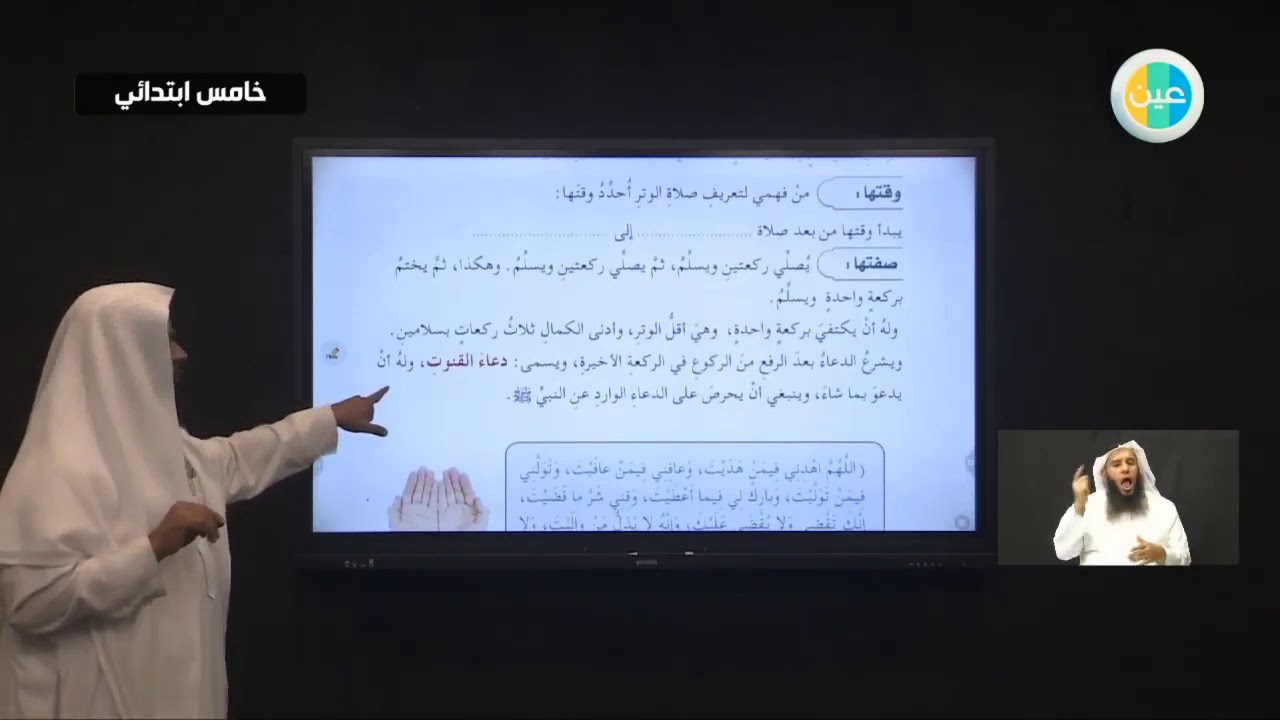 خامس ابتدائي
عين
وقتها: منْ فهمي لتعريفِ صلاةِ الوترِ أُحدِّدُ وقتَها:
يبدأ وقتها من بعد صلاة .......................... إلى ..............................
صفتها: يُصلِّي ركعتينِ ويسلِّمُ، ثمَّ يصلِّي ركعتينِ ويسلِّمُ. وهكذا، ثمَّ يختمُ
بركعةٍ واحدةٍ ويسلِّمُ.
ولهُ أنْ يكتفيَ بركعةٍ واحدةٍ، وهيَ أقلُّ الوترِ، وأدنى الكمالِ ثلاثُ ركعاتٍ بسلامينِ.
ويشرعُ الدعاءُ بعدَ الرفعِ منَ الركوعِ في الركعةِ الأخيرةِ، ويسمى: دعاءَ القنوتِ، ولهُ أنْ
يدعوَ بما شاءَ، وينبغي أنْ يحرصَ على الدعاءِ الواردِ عنِ النبيِّ ﷺ.
(اللَّهُمَّ اهْدِنِي فِيمَنْ هَدَيْتَ، وَعافِنِي فِيمَنْ عافَيْتَ، وَتَوَلَّنِي
فِيمَنْ تَوَلَّيْتَ، وَبارِكْ لي فيما أَعْطَيْتَ، وَقِنِي شَرَّ ما قَضَيْتَ،
إِنَّكَ تَقْضِي وَلا يُقْضَى عَلَيْكَ، وَإِنَّهُ لا يَذِلُّ مَنْ والَيْتَ، وَلا